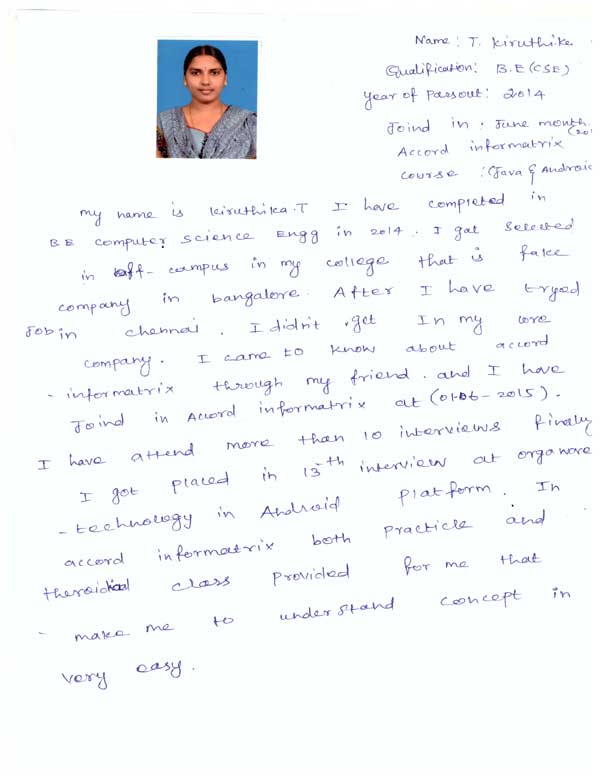 Name: T. Kiruthika
Qualification: B.E (CSE)
Year of Passout: 2014
Joind in: June month.
Accord informatrix (201
course : (Java & Android
my name is kiruthika.T I have completed in
BE computer science Engg in 2014. I gat selected
in off-campus in my college that is fake
company in bangalore. After I have tryed
Job in chennai. I didn't get In my core
company. I came to know about accord
- informatrix through my friend. and I have
Joind in Accord informatrix at (01-06-2015).
I have attend more than 10 interviews finally
I got placed in 13th interview at organore
- technology in Android platform. In
accord informatrix both practicle and
class provided for me that
make me to understand concept in
very easy.